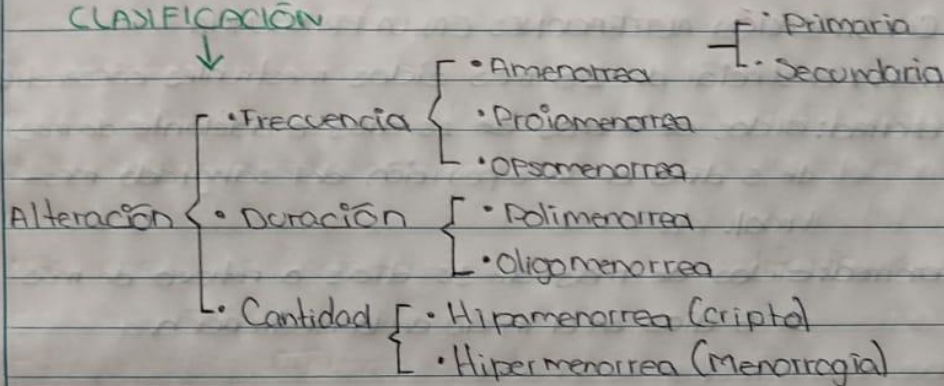 CLASIFICACIÓN
↓
Alteración
• Frecuencia
• Amenorrea
• Primaria
• Secundaria
• Proiomenorrea
• Opsomenorrea
• Duración
• Polimenorrea
• Oligomenorrea
• Cantidad
• Hipomenorrea (cripto)
• Hipermenorrea (Menorragia)